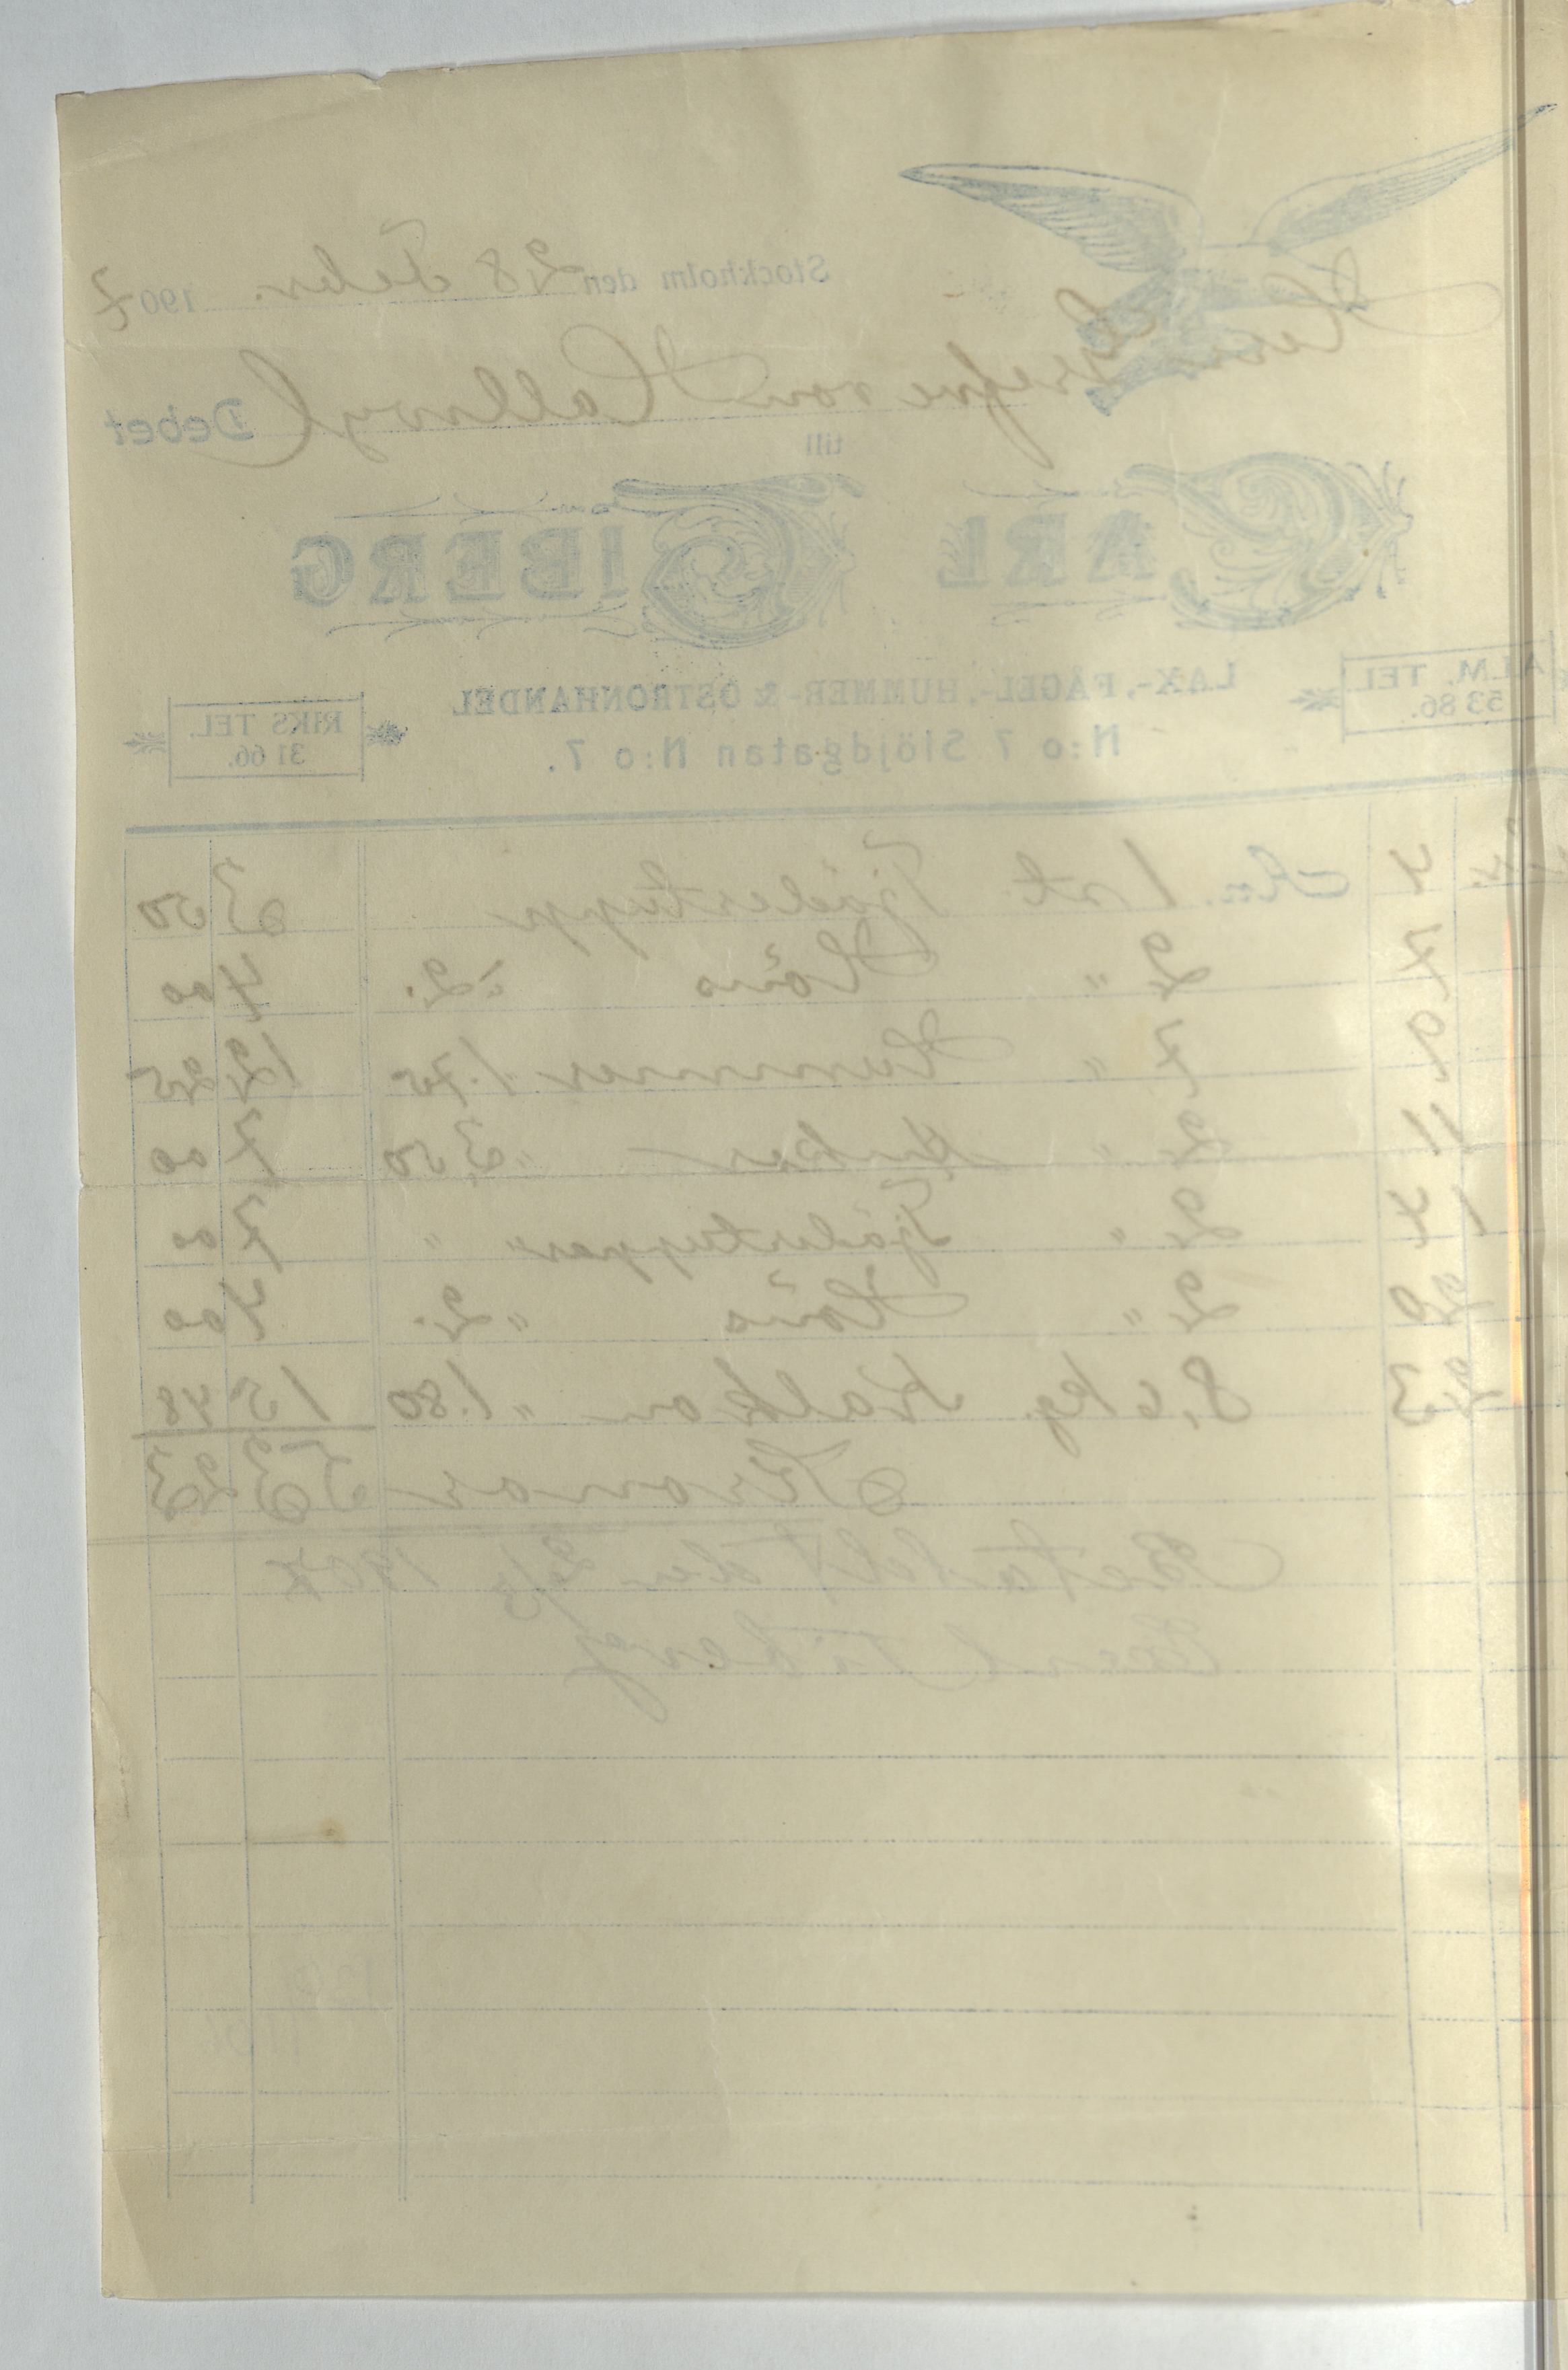 Stockholm den 28 Febr. 1907
Herr Grefve von Hallwyl Debet
till
CARL TIBERG
LAX-, FÅGEL-, HUMMER- & OSTRONHANDEL
ALM. TEL. 53 86.
RIKS TEL. 31 66.
N:o 7 Slöjdgatan N:o 7.
4 An. 1 st. Tjädertupp 3 50
7 2 " Höns à 2. 4 00
9 7 " Hummer 1.75 12 25
11 2 " " 3,50 7 00
14 2 " Tjädertuppar " " 7 00
20 2 " Höns " 2. 4 00
23 8,6 kg. Kalkon " 1.80 15 48
Kronor 53 23
Betaldt den 2/3 1907
Carl Tiberg